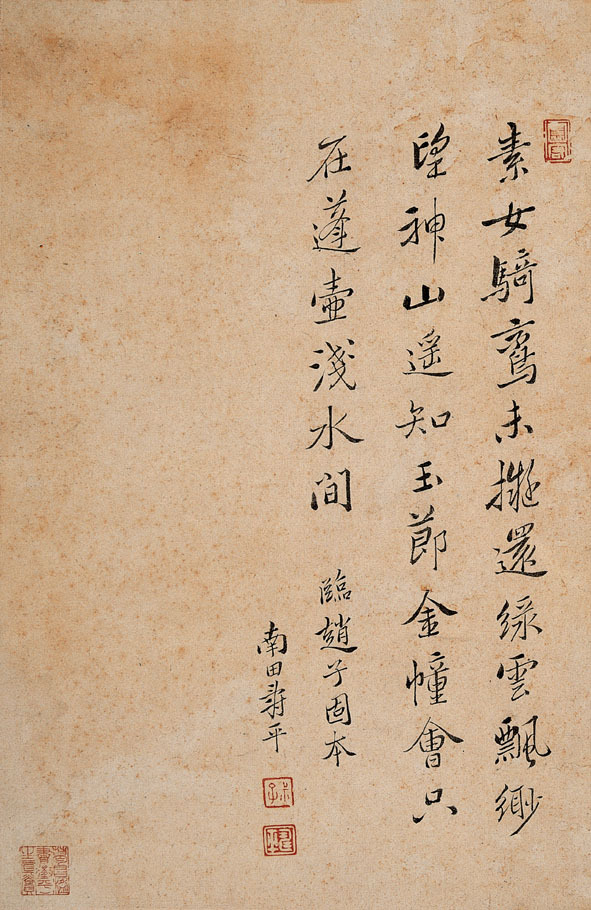 素女騎鸞未擬還緑雲飄緲
望神山遥知玉節金幢會只
在蓬壷淺水間
臨趙子固本
南田壽平